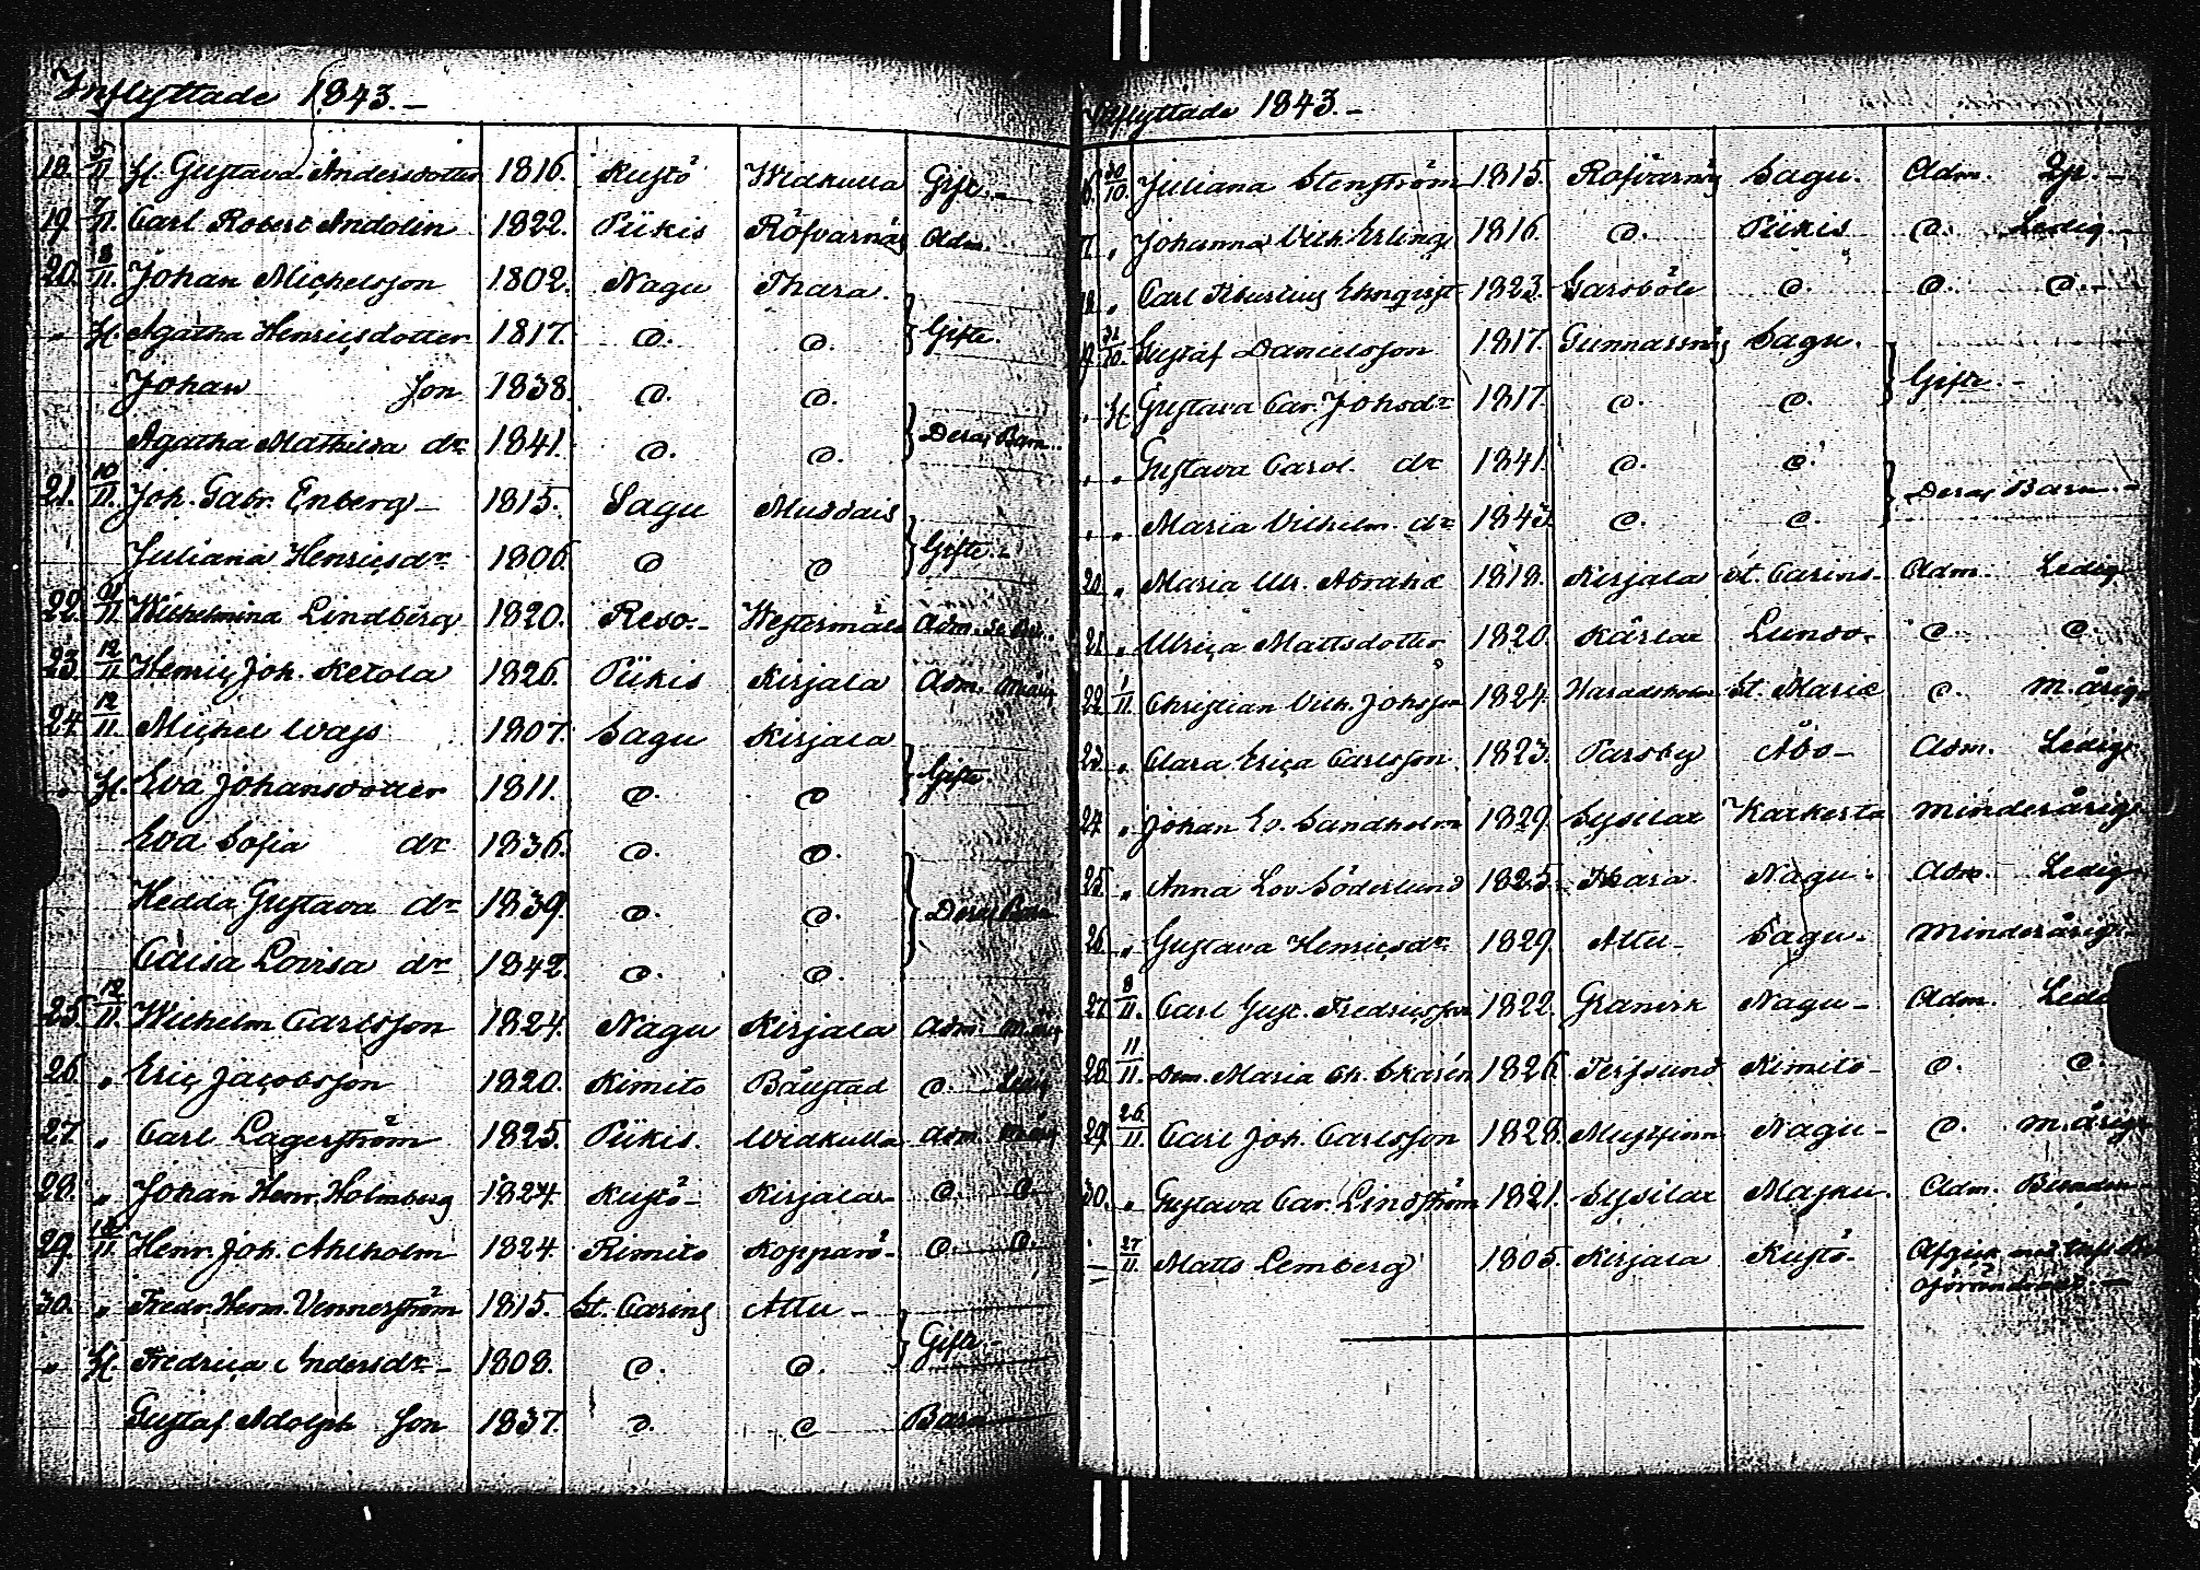 Inflyttade 1843.-
18. 5/11 H. Gustava Andersdotter 1816. Kustö Widkulla Gift.-
19. 7/11. Carl Robert Andolin 1822. Piikis Röfvarnäs Adm.
20. 8/11. Johan Michelsson 1802. Nagu Thara.
" H. Agatha Henricsdotter 1817. d:o d:o } Gifte.
Johan son 1838. d:o d:o
Agatha Mathilda dr 1841. d:o d:o } Deras Barn.
21. 10/11. Joh. Gabr. Enberg- 1815. Sagu Muddais
Juliana Henricsdr 1806. d:o d:o } Gifte.-
22. 11/11 Wilhelmina Lindberg 1820. Reso.- Westermäla Adm.
23. 12/11 Henric Joh. Ketola 1826. Piikis Kirjala Adm. m.årig
24. 12/11. Michel Wass 1807. Sagu Kirjala
" H. Eva Johansdotter 1811. d:o d:o } Gifte.
Eva Sofia dr 1836. d:o d:o
Hedda Gustava dr 1839. d:o d:o } Deras Barn
Caisa Lovisa dr 1842. d:o d:o
25. 12/11. Wilhelm Carlsson 1824. Nagu Kirjala Adm. m.årig
26. " Eric Jacobsson 1820. Kimito Båustad d:o Ledig
27. " Carl Lagerström 1825. Piikis. Widkulla Adm. m.årig
28. " Johan Henr. Holmberg 1824. Kustö- Kirjala- d:o d:o
29. 12/11. Henr. Joh. Ahlholm 1824. Kimito Kopparö- d:o d:o
30. " Fredr. Herm. Vennerström 1815. St. Carins Attu-
" H. Fredrica Andersdr- 1808. d:o d:o } Gifte.-
Gustaf Adolph son 1837. d:o d:o Barn
Utflyttade 1843.-
16. 30/10. Juliana Stenström 1815. Röfvarnäs Sagu. Adm.
17. " Johanna Vilh. Erling 1816. d:o Piikis d:o Ledig.-
18. " Carl Tiburtius Ehnqvist 1823. Garsböle d:o d:o d:o
19. 31/10. Gustaf Danielsson 1817. Gunnarsnäs Sagu.
" H. Gustava Car. Johsdr 1817. d:o d:o } Gifte.-
" " Gustava Carol. dr 1841. d:o d:o
" " Maria Vilhelm. dr 1843. d:o d:o } Deras Barn.-
20. " Maria Ulr. Abrahd 1818. Kirjala St. Carins- Adm. Ledig
21. " Ulrica Mattsdotter 1820. Kärlax Lundo. d:o d:o
22. 1/11 Christian Vilh. Johsson 1824. Haradsholm St. Mariæ d:o m.årig
23. " Clara Erica Carlsson. 1823. Parsby Åbo- Adm. Ledig.
24. " Johan Ed. Sandholm 1829. Sysilax Karkerta minderårig
25. " Anna Lov. Söderlund 1825. Thara Nagu. Adm. Ledig
26. " Gustava Henricsdr 1829. Attu- Sagu. minderårig.
27. 8/11. Carl Gust. Fredricsson 1822. Granvik Nagu- Adm. Ledi
28. 11/11. Dem. Maria Ch. Skarén 1826. Terfsund Kimito- d:o d:o
29. 26/11. Carl Joh. Carlsson 1828. Mustfinn Nagu- d:o m.årig
30. " Gustava Car. Lindström 1821. Sysilax Masku. Adm.
27/11 Matts Lemberg 1805. Kirjala Kustö.